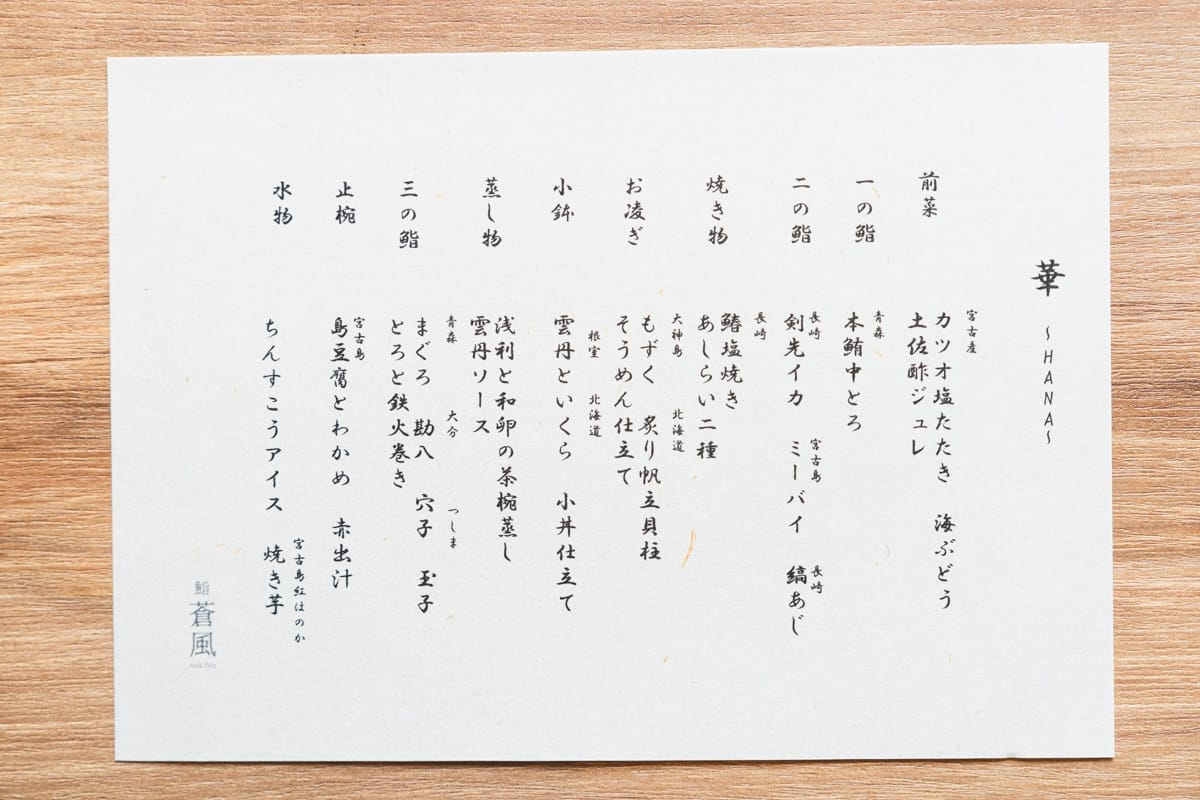 華 ~HANA~
前菜
宮古産
カツオ塩たたき 海ぶどう
土佐酢ジュレ
一の鮨
青森
本鮪中とろ
二の鮨
長崎 宮古島 長崎
剣先イカ ミーバイ 縞あじ
焼き物
長崎
鰆塩焼き
あしらい二種
お凌ぎ
大神島 北海道
もずく 炙り帆立貝柱
そうめん仕立て
小鉢
根室 北海道
雲丹といくら 小丼仕立て
蒸し物
浅利と和卵の茶椀蒸し
雲丹ソース
三の鮨
青森 大分 つしま
まぐろ 勘八 穴子 玉子
とろと鉄火巻き
止椀
宮古島
島豆腐とわかめ 赤出汁
水物
宮古島紅ほのか
ちんすこうアイス 焼き芋
鮨
蒼風